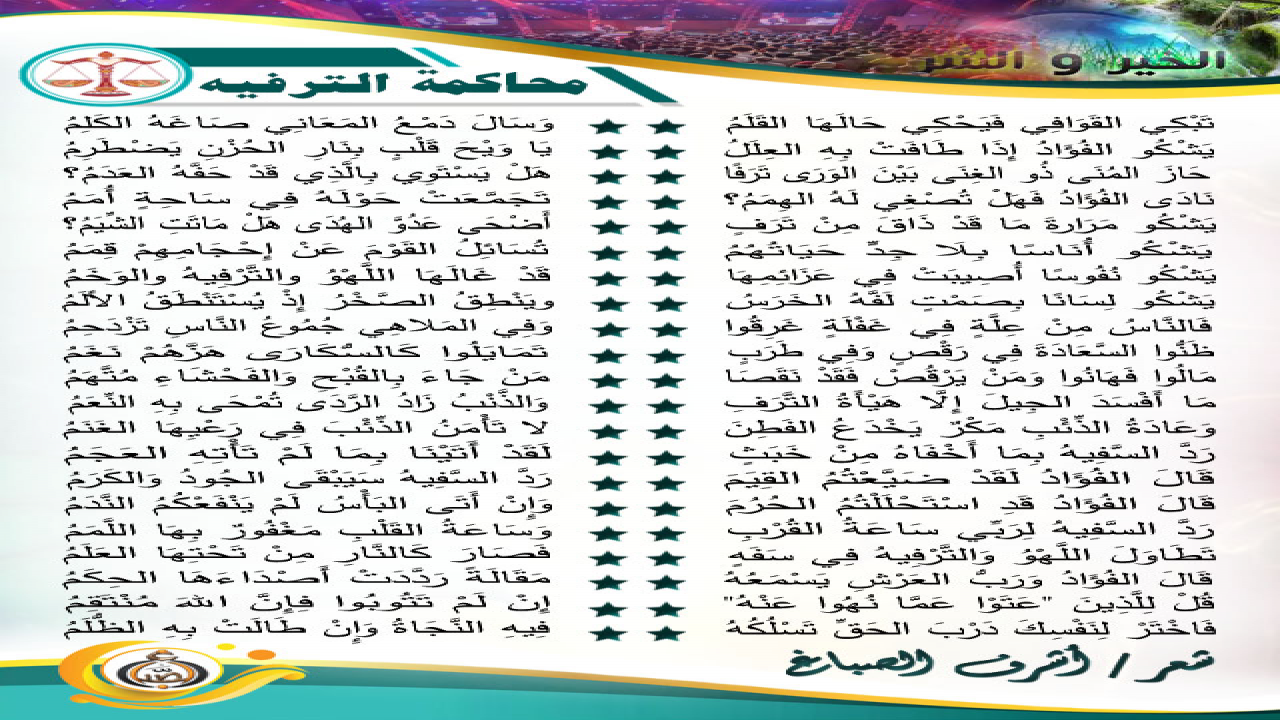 الخير و الشر
محاكمة الترفيه
تَبْكِي القَوَافِي فَيَحْكِي حَالَهَا القَلَمُ ★ ★ وَسَالَ دَمْعُ المَعَانِي صَاغَهُ الكَلِمُ
يَشْكُو الفُؤَادُ إِذَا طَافَتْ بِهِ العِلَلُ ★ ★ يَا وَيْحَ قَلْبٍ بِنَارِ الحُزْنِ يَضْطَرِمُ
حَازَ المُنَى ذُو الغِنَى بَيْنَ الوَرَى تَرَفًا ★ ★ هَلْ يَسْتَوِي بِالَّذِي قَدْ حَفَّهُ العَدَمُ؟
نَادَى الفُؤَادُ فَهَلْ تُصْغِي لَهُ الهِمَمُ؟ ★ ★ تَجَمَّعَتْ حَوْلَهُ فِي سَاحِةٍ أُمَمُ
يَشْكُو مَرَارةَ مَا قَدْ ذَاقَ مِنْ تَرَفٍ ★ ★ أَضْحَى عَدُوَّ الهُدَى هَلْ مَاتَتِ الشِّيَمُ؟
يَشْكُو أُنَاسًا بِلَا جِدٍّ حَيَاتُهُمُ ★ ★ تُسَائِلُ القَوْمَ عَنْ إِحْجَامِهِمْ قِمَمُ
يَشْكُو نُفُوسًا أُصِيبَتِ فِي عَزَائِمِهَا ★ ★ قَدْ غَالَهَا اللَّهْوُ والتَّرْفِيهُ والوَخَمُ
يَشْكُو لِسَانًا بِصَمْتٍ لَفَّهُ الخَرَسُ ★ ★ ويَنْطِقُ الصَّخْرُ إِذْ يُسْتَنْطَقُ الأَلَمُ
فَالنَّاسُ مِنْ عِلَّةٍ فِي غَفْلَةٍ غَرِقُوا ★ ★ وَفِي المَلاهِي جُمُوعُ النَّاسِ تَزْدَحِمُ
ظَنُّوا السَّعَادَةَ فِي رَقْصٍ وَفِي طَرَبٍ ★ ★ تَمَايَلُوا كَالسُّكَارَى هَزَّهُمْ نَغَمُ
مالُوا فَهَانُوا وَمَنْ يَرْقُصْ فَقَدْ نَقَصَا ★ ★ مَنْ جَاءَ بِالقُبْحِ وَالفَحْشَاءِ مُتَّهَمُ
مَا أَفْسَدَ الجِيلَ إِلَّا هَيْأَةُ التَّرَفِ ★ ★ وَالذَّنْبُ زَادُ الرَّدَى تُمْحَى بِهِ النِّعَمُ
وَعَادَةُ الذِّئْبِ مَكْرٌ يَخْدَعُ الفَطِنَ ★ ★ لا تَأْمَنُ الذِّئْبَ فِي رَعْيِهَا الغَنَمُ
رَدَّ السَّفِيهُ بِمَا أَخْفَاهُ مِنْ خَبَثٍ ★ ★ لَقَدْ أَتَيْنَا بِمَا لَمْ تَأْتِهِ العَجَمُ
قَالَ الفُؤَادُ لَقَدْ ضَيَّعْتُمُ القِيَمَ ★ ★ رَدَّ السَّفِيهُ سَيَبْقَى الجُودُ وَالكَرَمُ
قَالَ الفُؤَادُ قَدِ اسْتَحْلَلْتُمُ الحُرُمَ ★ ★ وَإِنْ أَتَى البَأْسُ لَمْ يَنْفَعْكُمُ النَّدَمُ
رَدَّ السَّفِيهُ لِرَبِّي سَاعَةُ القُرْبِ ★ ★ وَسَاعَةُ القَلْبِ مَغْفُورٌ بِهَا اللَّمَمُ
تَطَاوَلَ اللَّهْوُ وَالتَّرْفِيهُ فِي سَفَهٍ ★ ★ فَصَارَ كَالنَّارِ مِنْ تَحْتِهَا العَلَمُ
قَالَ الفُؤَادُ وَرَبُّ العَرْشِ يَسْمَعُهُ ★ ★ مَقَالَةً رَدَّدَتْ أَصْدَاءَهَا الحِكَمُ
قُلْ لِلَّذِينَ "عَتَوْا عَمَّا نُهُوا عَنْهُ" ★ ★ إِنْ لَمْ تَتُوبُوا فِإِنَّ اللهَ مُنْتَقِمُ
فَاخْتَرْ لِنَفْسِكَ دَرْبَ الحَقِّ تَسْلُكُهُ ★ ★ فِيهِ النَّجَاةُ وَإِنْ طَالَتْ بِهِ الظُّلَمُ
شعر / أشرف الصباغ